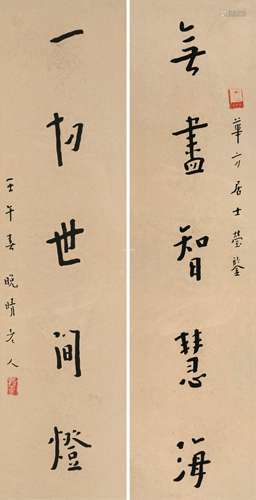 無盡智慧海
華亭居士瑩鑒
一切世間燈
壬午春晚晴老人